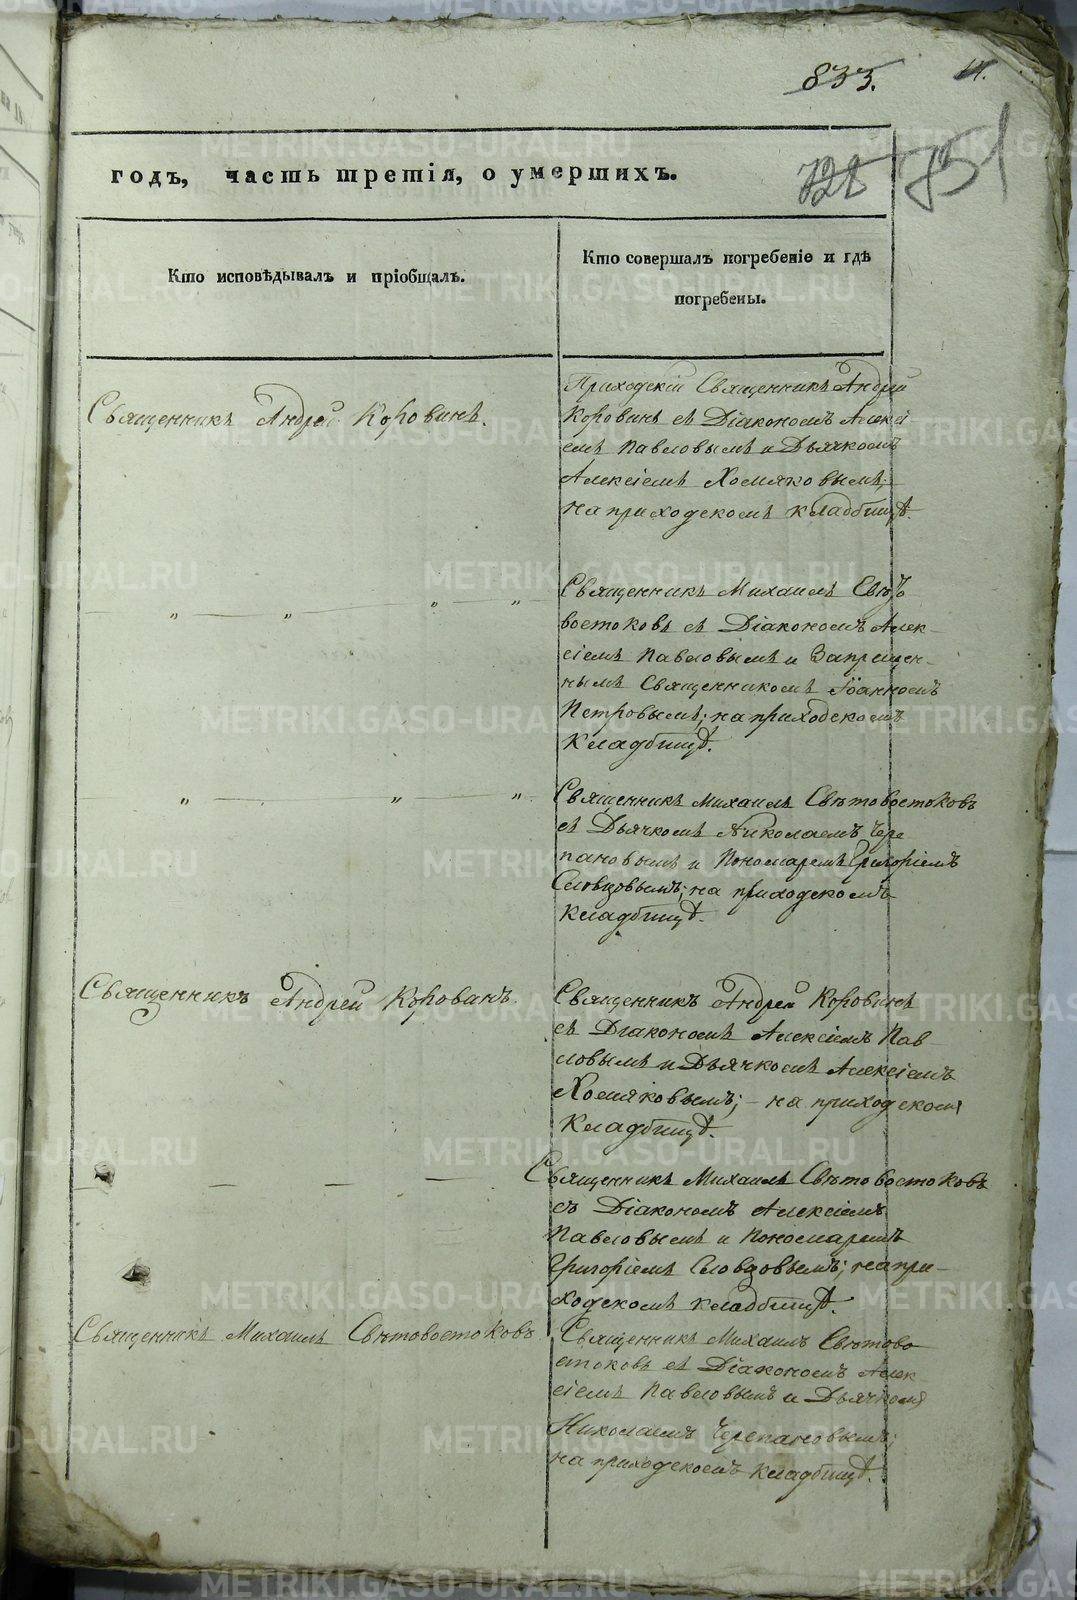 833.
годъ, часть третія, о умершихъ.
728 851
Кто исповѣдывалъ и пріобщалъ.
Кто совершалъ погребеніе и гдѣ
погребены.
Священникъ Андрей Коровинъ.
Приходскій Священникъ Андрей
Коровинъ съ Діакономъ Алексі-
емъ Павловымъ и Дьячкомъ
Алексіемъ Хомяковымъ;
на приходскомъ кладбищѣ.
— „ — „ — „ — „
Священникъ Михаилъ Свѣто
востоковъ съ Діакономъ Алек-
сіемъ Павловымъ и Запрещен-
нымъ Священникомъ Іоанномъ
Петровымъ; на приходскомъ
кладбищѣ.
„ — „ — „
Священникъ Михаилъ Свѣтовостоковъ
съ Дьячкомъ Николаемъ Чере
пановымъ и Пономаремъ Григоріемъ
Словцовымъ; на приходскомъ
кладбищѣ.
Священникъ Андрей Корованъ.
Священникъ Андрей Коровинъ
съ Діакономъ Алексіемъ Пав
ловымъ и Дьячкомъ Алексіемъ
Хомяковымъ; – на приходскомъ
кладбищѣ.
— — — —
Священникъ Михаилъ Свѣтовостоковъ
съ Діакономъ Алексіемъ
Павловымъ и Пономаремъ
Григоріемъ Словцовымъ; на при-
ходскомъ кладбищѣ.
Священникъ Михаилъ Свѣтовостоковъ
Священникъ Михаилъ Свѣтово
стоковъ съ Діакономъ Алек-
сіемъ Павловымъ и Дьячкомъ
Николаемъ Черепановымъ;
на приходскомъ кладбищѣ.
METRIKI.GASO-URAL.RU